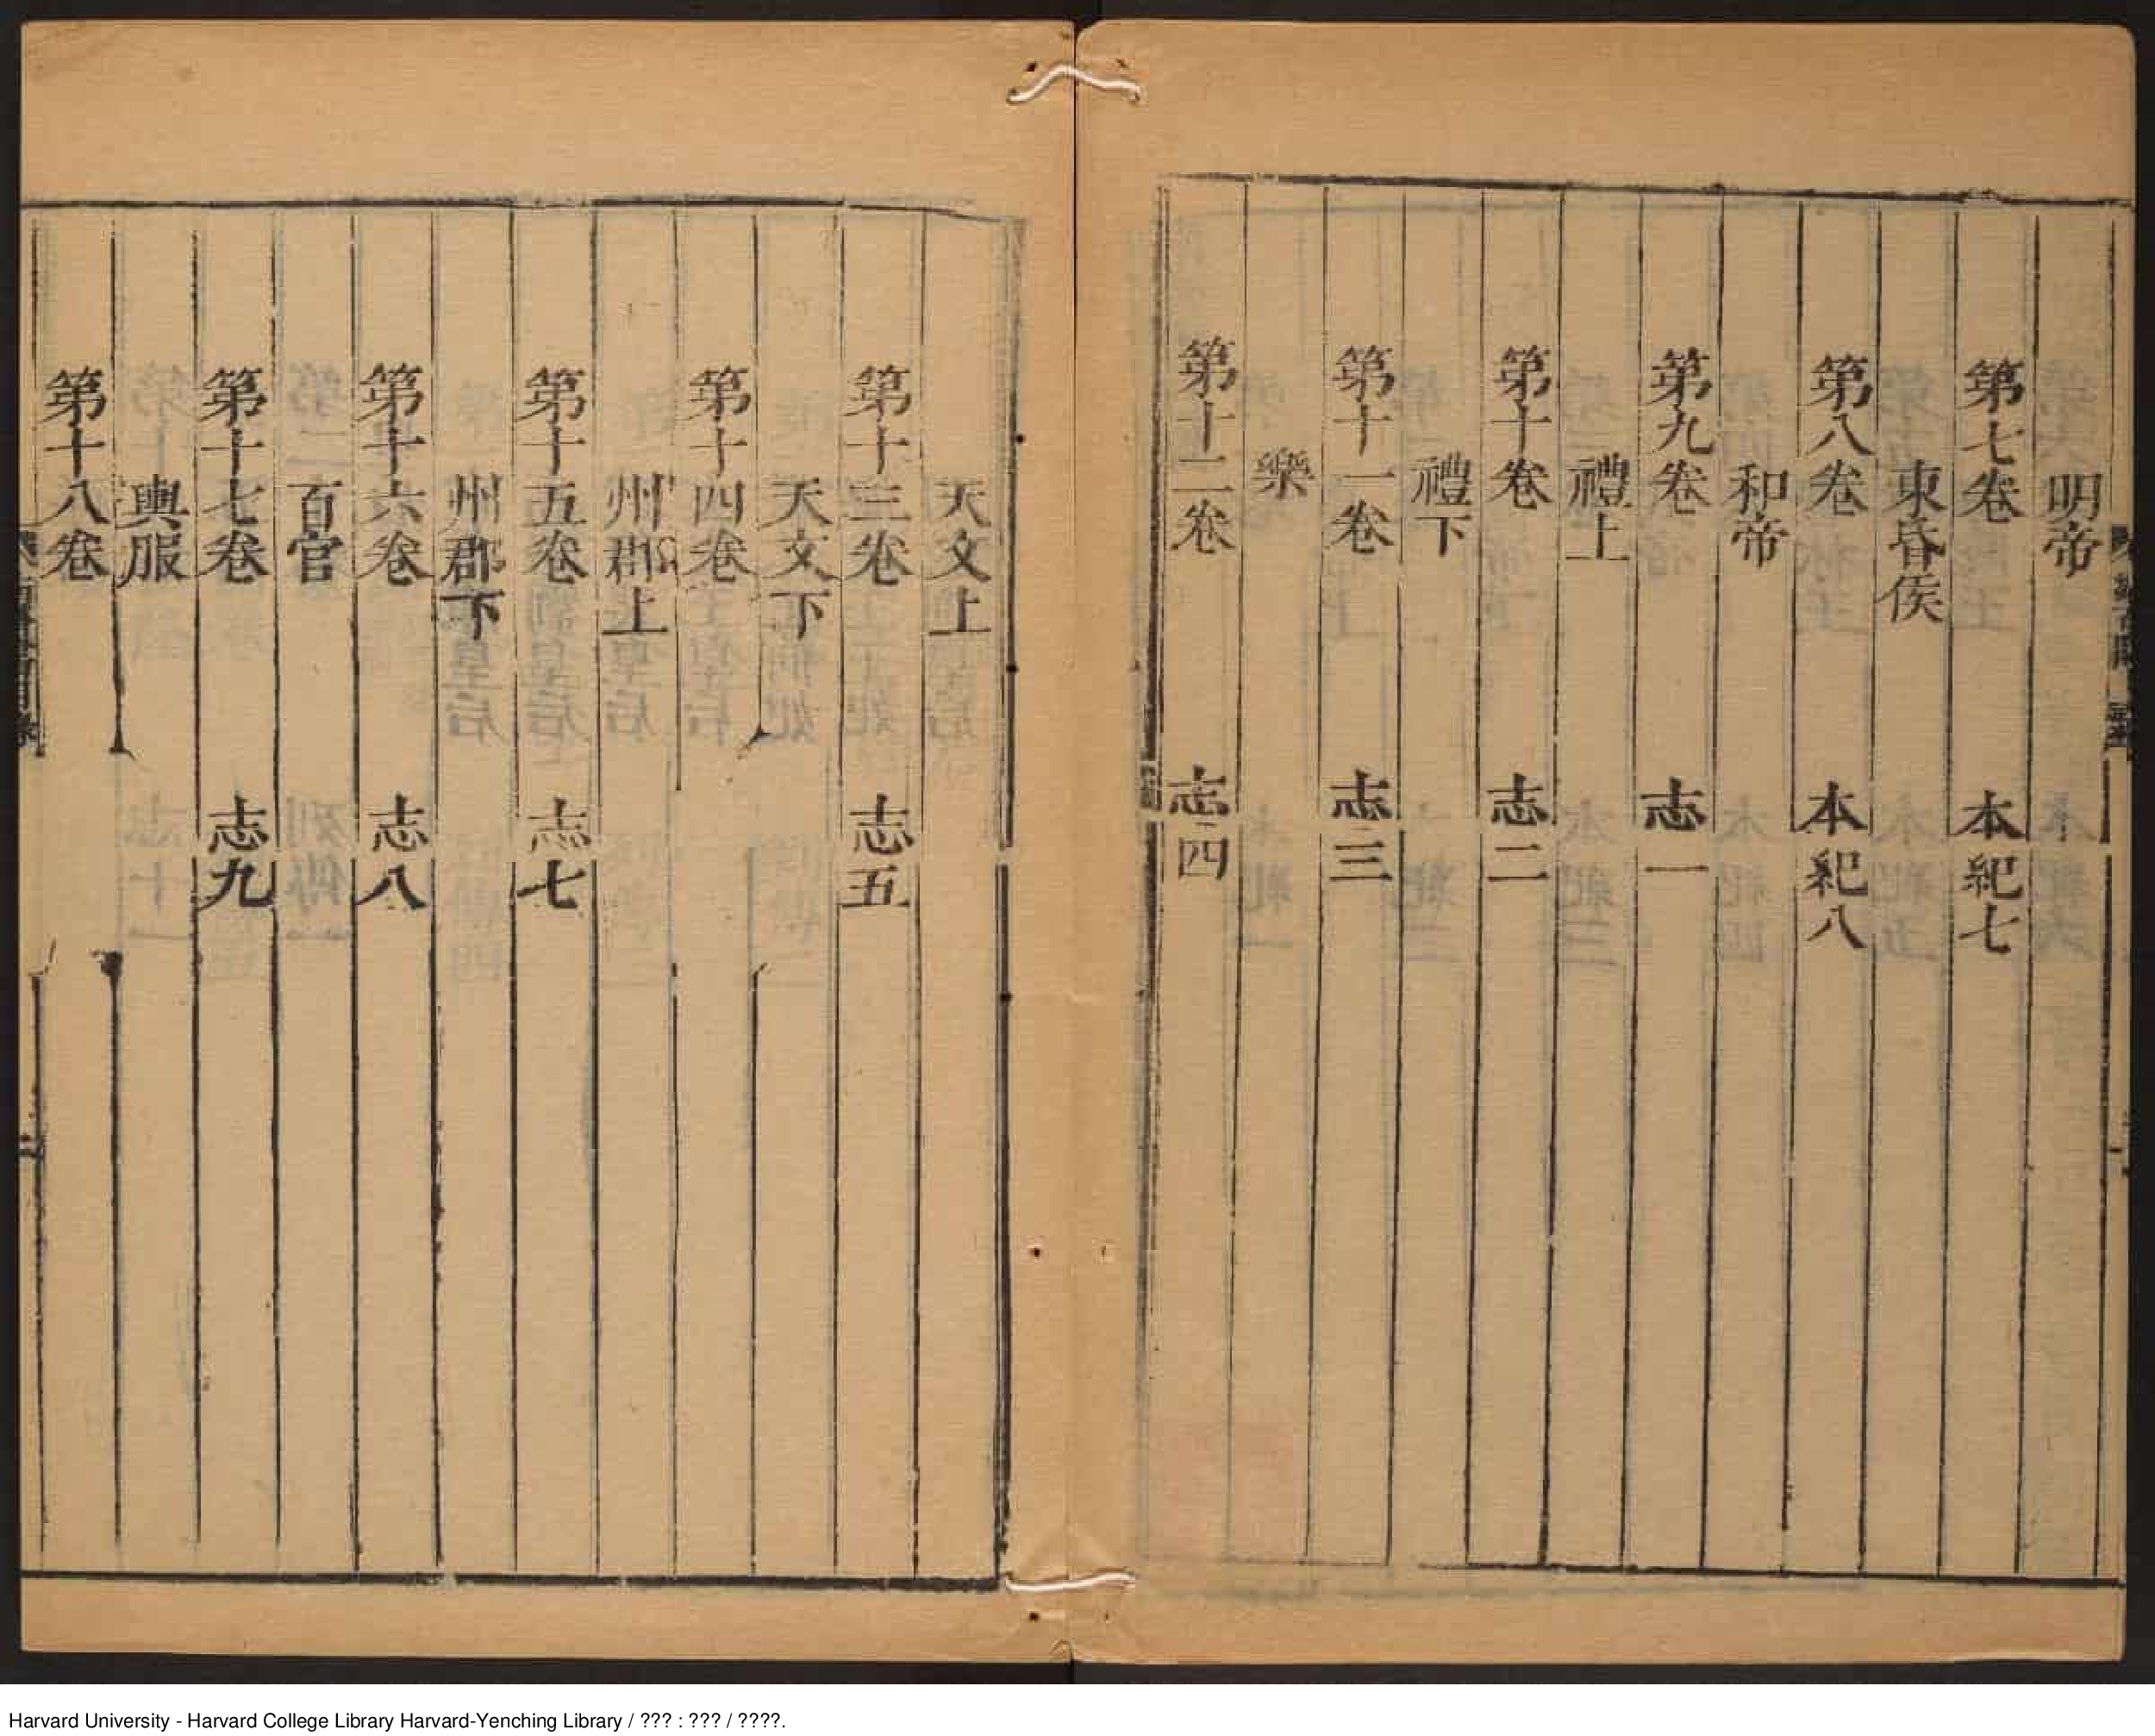 明帝
第七卷 本紀七
東昏侯
第八卷 本紀八
和帝
第九卷 志一
禮上
第十卷 志二
禮下
第十一卷 志三
樂
第十二卷 志四
天文上
第十三卷 志五
天文下
第十四卷
州郡上
第十五卷 志七
州郡下
第十六卷 志八
百官
第十七卷 志九
輿服
第十八卷
Harvard University - Harvard College Library Harvard-Yenching Library / ??? : ??? / ????.